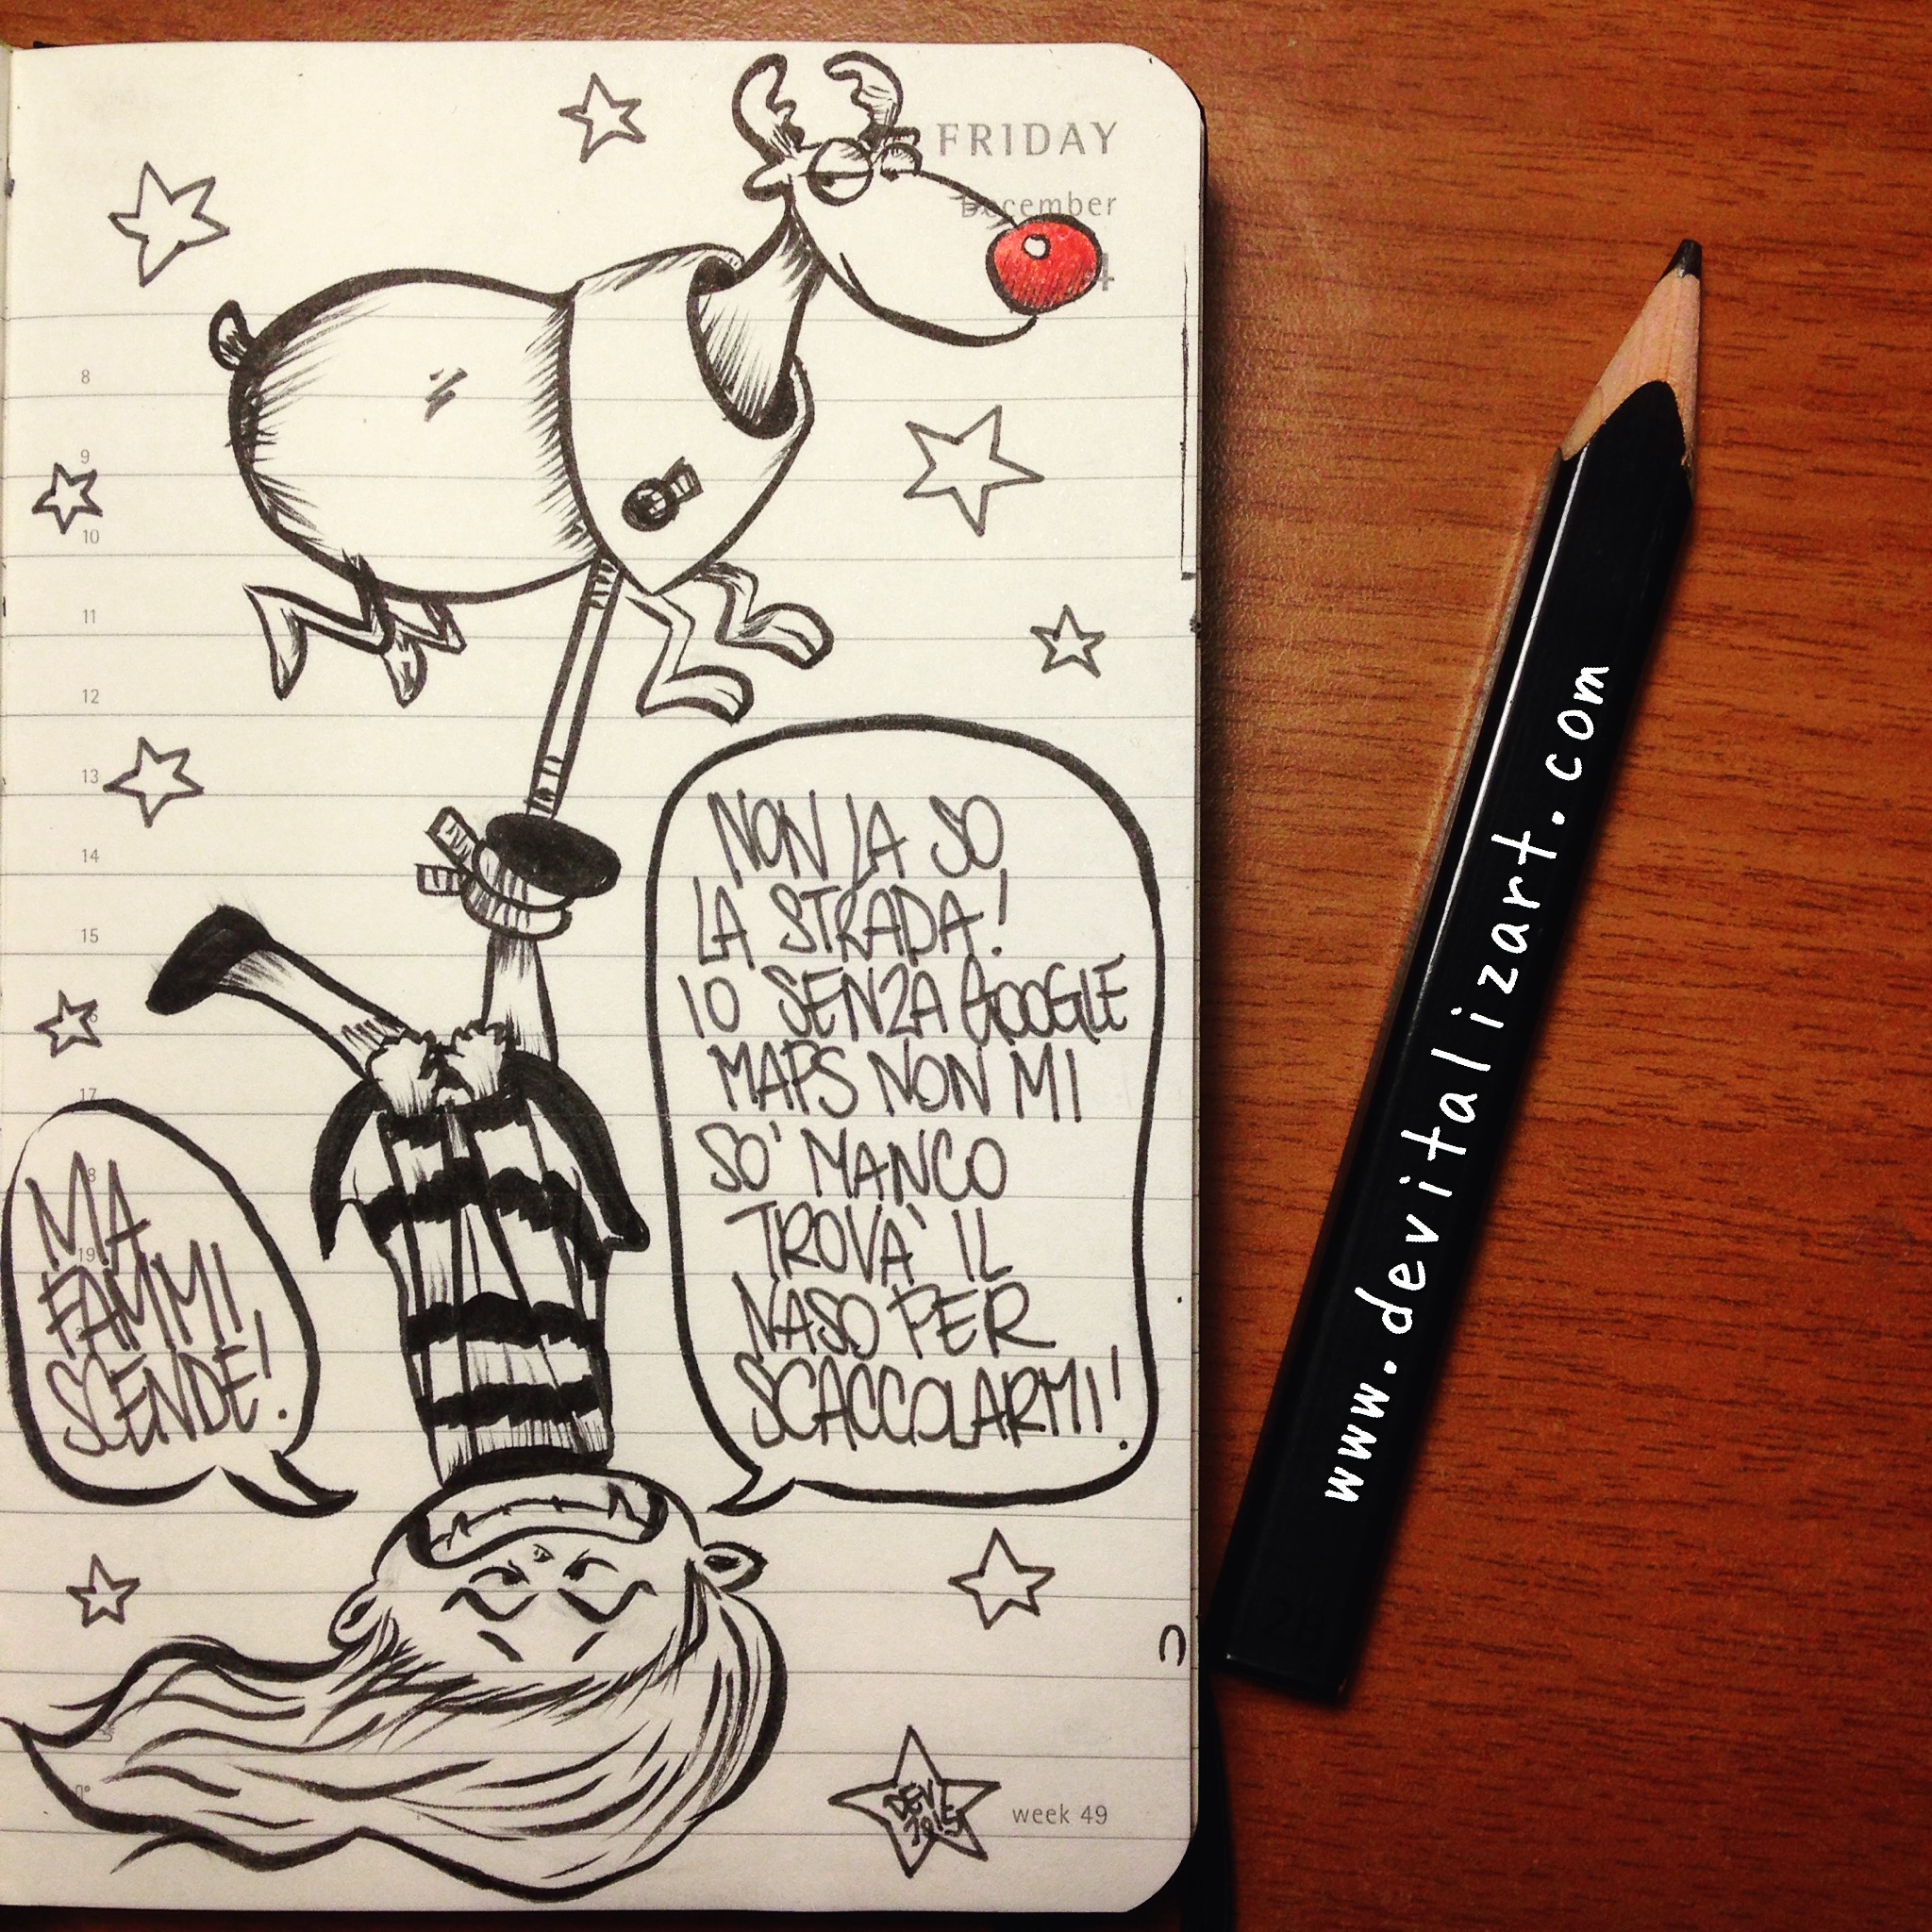 FRIDAY
December
4
8
9
10
11
12
13
14
15
17
19
NON LA SO
LA STRADA!
IO SENZA GOOGLE
MAPS NON MI
SO' MANCO
TROVA' IL
NASO PER
SCACCOLARMI!
MA
FAMMI
SCENDE!
DEV
2015
week 49
www.devitalizart.com